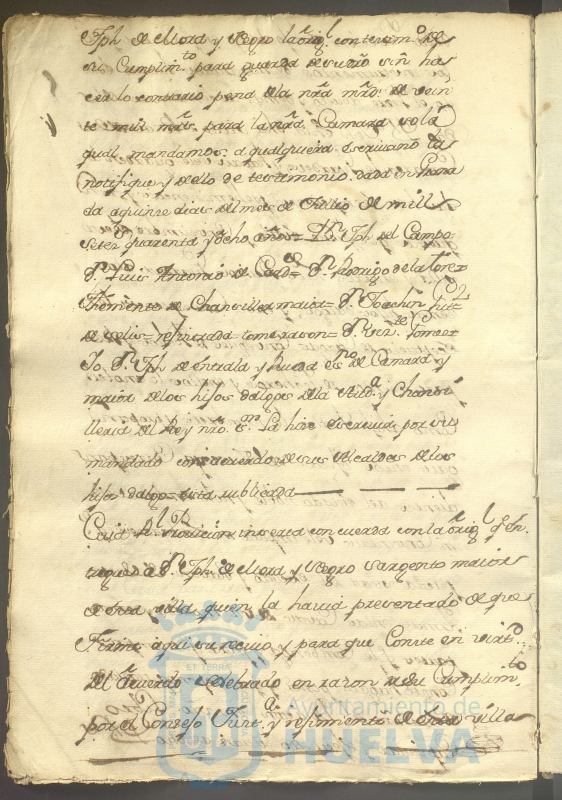 Jph. de Mora y Negro la orig.l con testim.o de
su Cumplim.to para guarda de su dro sin has
cer lo contrario pena de la nra mrd. de vein
te mill mrs. para la nra Camara so la
qual mandamos a qualquiera escrivano las
notifique y de ello de testimonio dada en Grana
da a quinze dias del mes de Jullio de mill
Setez.s quarenta y ocho años = D.n Jph. del Campo =
D.n Luis Antonio de = D.n Rodrigo de la Torre =
Theniente de Chanciller maior = D.n Joachin
de = rexistrada tome razon = D.n Gomez
Yo D.n Jph. de Entrala y Rueda es.no de Camara y
maior de los hijos dalgos de la Aud.a y Chansi
lleria del Rey nro s.or la hize escrevir por su
mandado con acuerdo de sus Alcaldes de los
hijos dalgo = esta rubricada
Cuia R.l Provicion inserta concuerda con la orig.l q.e en
tregue a D.n Jph. de Mora y Negro Sargento maior
de esta villa quien la havia presentado de que
Firma aqui su recivo y para que Conste en virt.d
del Acuerdo celebrado en razon de su Cumplim.to
por el Consejo Just.a y rejimiento de esta villa
Ayuntamiento de
HUELVA